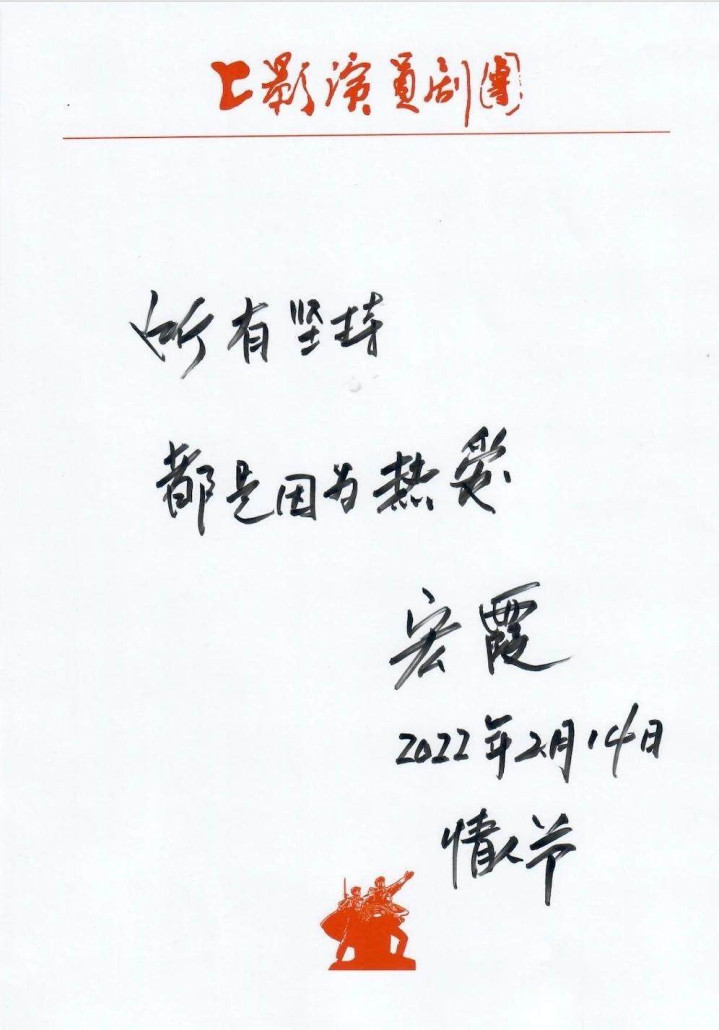 上影演員剧團
所有坚持
都是因为热爱
宏霞
2022年2月14日
情人节